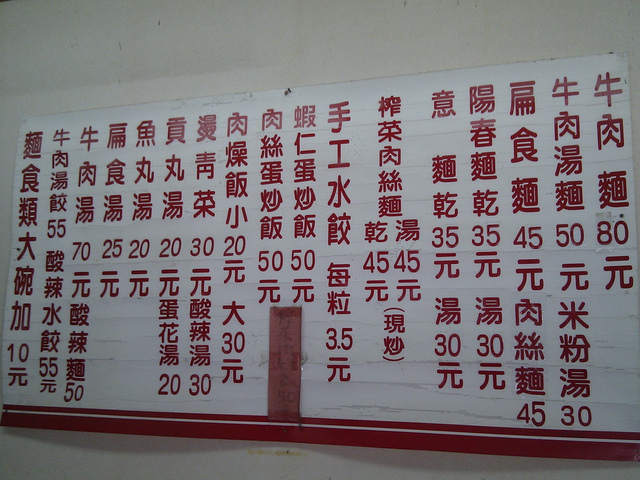 牛肉麵80元
牛肉湯麵50元 米粉湯30
扁食麵45元 肉絲麵45
陽春麵乾35元 湯30元
意麵乾35元 湯30元
榨菜肉絲麵 湯45元 乾45元 (現炒)
手工水餃每粒3.5元
蝦仁蛋炒飯50元
肉絲蛋炒飯50元
肉燥飯小20元 大30元
燙青菜30元 酸辣湯30
貢丸湯20元 蛋花湯20
魚丸湯20元
扁食湯25元
牛肉湯70元 酸辣麵50
牛肉湯餃55 酸辣水餃55元
麵食類大碗加10元